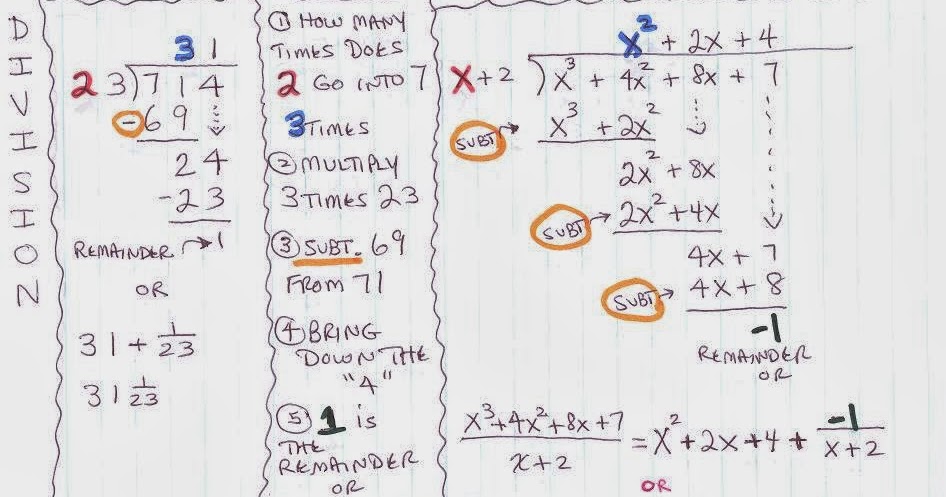 DIVISION
31
23)714
-69
24
-23
REMAINDER → 1
OR
31 + 1/23
31 1/23
① HOW MANY
TIMES DOES
2 GO INTO 7
3 TIMES
② MULTIPLY
3 TIMES 23
③ SUBT. 69
FROM 71
④ BRING
DOWN THE
"4"
⑤ 1 is
THE
REMAINDER
OR
x² + 2x + 4
x + 2 )x³ + 4x² + 8x + 7
SUBT → x³ + 2x²
2x² + 8x
SUBT → 2x² + 4x
4x + 7
SUBT → 4x + 8
-1
REMAINDER
OR
x³+4x²+8x+7/x+2 = x² + 2x + 4 + -1/x+2
OR